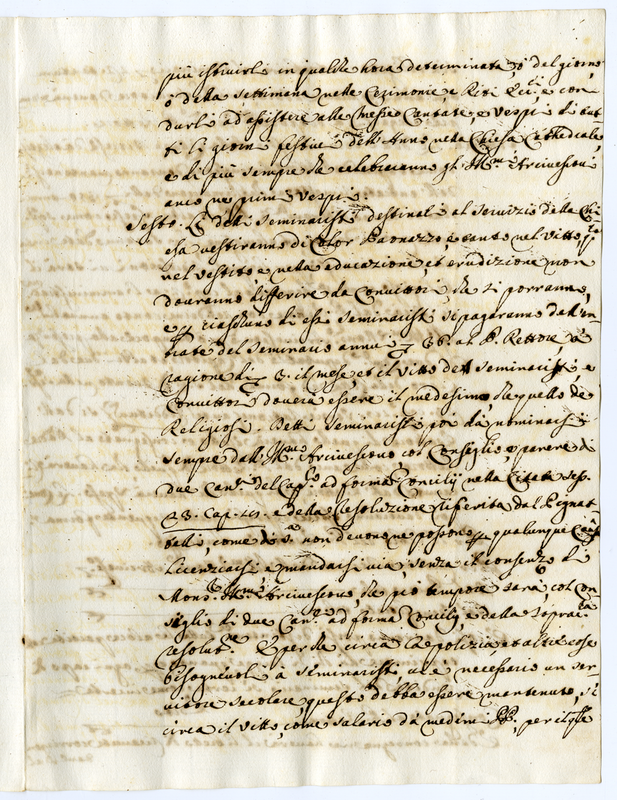 più istruirli in qualche hora determinata, ò del giorno,
ò della settimana nelle Cerimonie, e Riti Ecc.ci, e con
durli ad assistere alle Messe Cantate, e Vespri di tut
ti li giorni festivi dell'Anno nella Chiesa Cathedrale,
e di più sempre che celebraranno gl'Ill.mi Arcivescovi
anco ne primi Vespri:
Sesto. Che detti Seminaristi destinati al servizio della Chi
esa vestiranno di Color Paonazzo, e tanto nel vitto,
nel vestito, e nella educazione, et erudizione non
doveranno differire da Convittori, che vi porranno,
e p ciascuno di essi Seminaristi si pagaranno dall'en
trate del Seminario annui 36. al P. Rettore, à
ragione di 3. il mese, et il vitto de Seminaristi, e
Convittori doverà essere il medesimo, che quello de
Religiosi. Detti Seminaristi poi da nominarsi
sempre dall'Ill.mo Arcivescovo col Consiglio, e parere di
due Can.ci del Cap.lo ad formã Concilij nella Citata Sess.
23. Cap. e della resoluzione riferita dal Pignat
telli, come di s.a non devono, ne possono p qualunque
Licenziarsi, e mandarsi via, senza il consenso di
Mons. Ill.mo Arcivescovo, che pro tempore sarà, col con
siglio di due Can.ci ad formã Concilij, e dalla sopra
resolut.ne E perche circa la polizia, et altre cose
bisognevoli à Seminaristi, vi è necessario un ser
vitore secolare, questo debba essere mantenuto, si
circa il vitto, come salario da med.mi PP., per il che